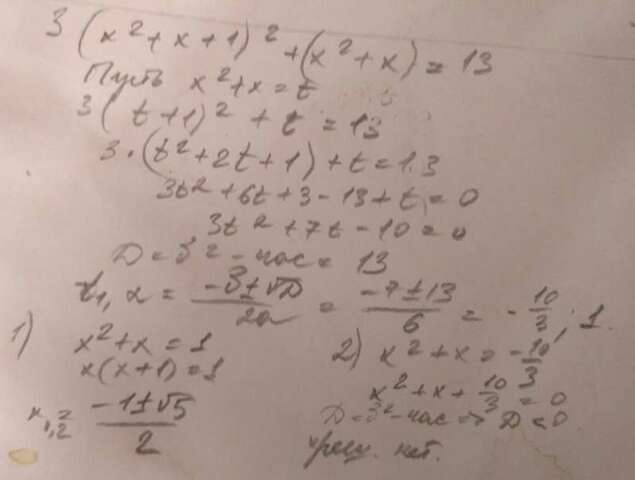 3(x²+x+1)²+(x²+x)=13
Пусть x²+x=t
3(t+1)²+t=13
3·(t²+2t+1)+t=13
3t²+6t+3-13+t=0
3t²+7t-10=0
D=b²-4ac=13
t1,2=(-b±√D)/2a=(-7±13)/6=-10/3; 1.
1) x²+x=1
x(x+1)=1
x1,2=(-1±√5)/2
2) x²+x=-10/3
x²+x+10/3=0
D=b²-4ac=>D<0
нет.